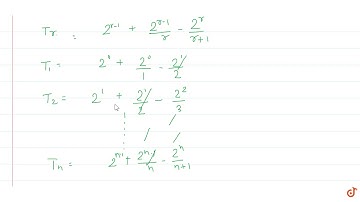 Tr = 2^(r-1) + 2^(r-1)/r - 2^r/(r+1)
T1 = 2^0 + 2^0/1 - 2^1/2
T2 = 2^1 + 2^1/2 - 2^2/3
Tn = 2^(n-1) + 2^(n-1)/n - 2^n/(n+1)